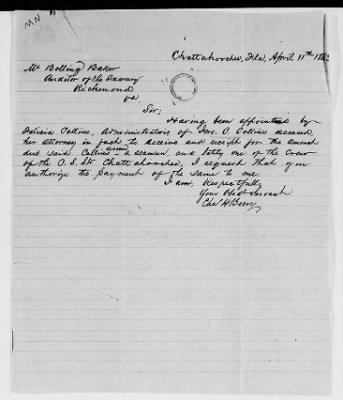 Chattahoochee, Fla, April 11th 186
Mr Bolling Baker
Auditor of the Treasury
Richmond
Va
Sir;
Having been appointed by
Collins, Administratrix of Jno. O. Collins deceased,
her attorney in fact to receive and receipt for the amount
due said Collins a seaman, and lately one of the Crew
of the C. S. Str. Chattahoochee, I request that you
authorize the payment of the same to me.
I am, Respectfully
Your Obdt Servant
Chas H Berry